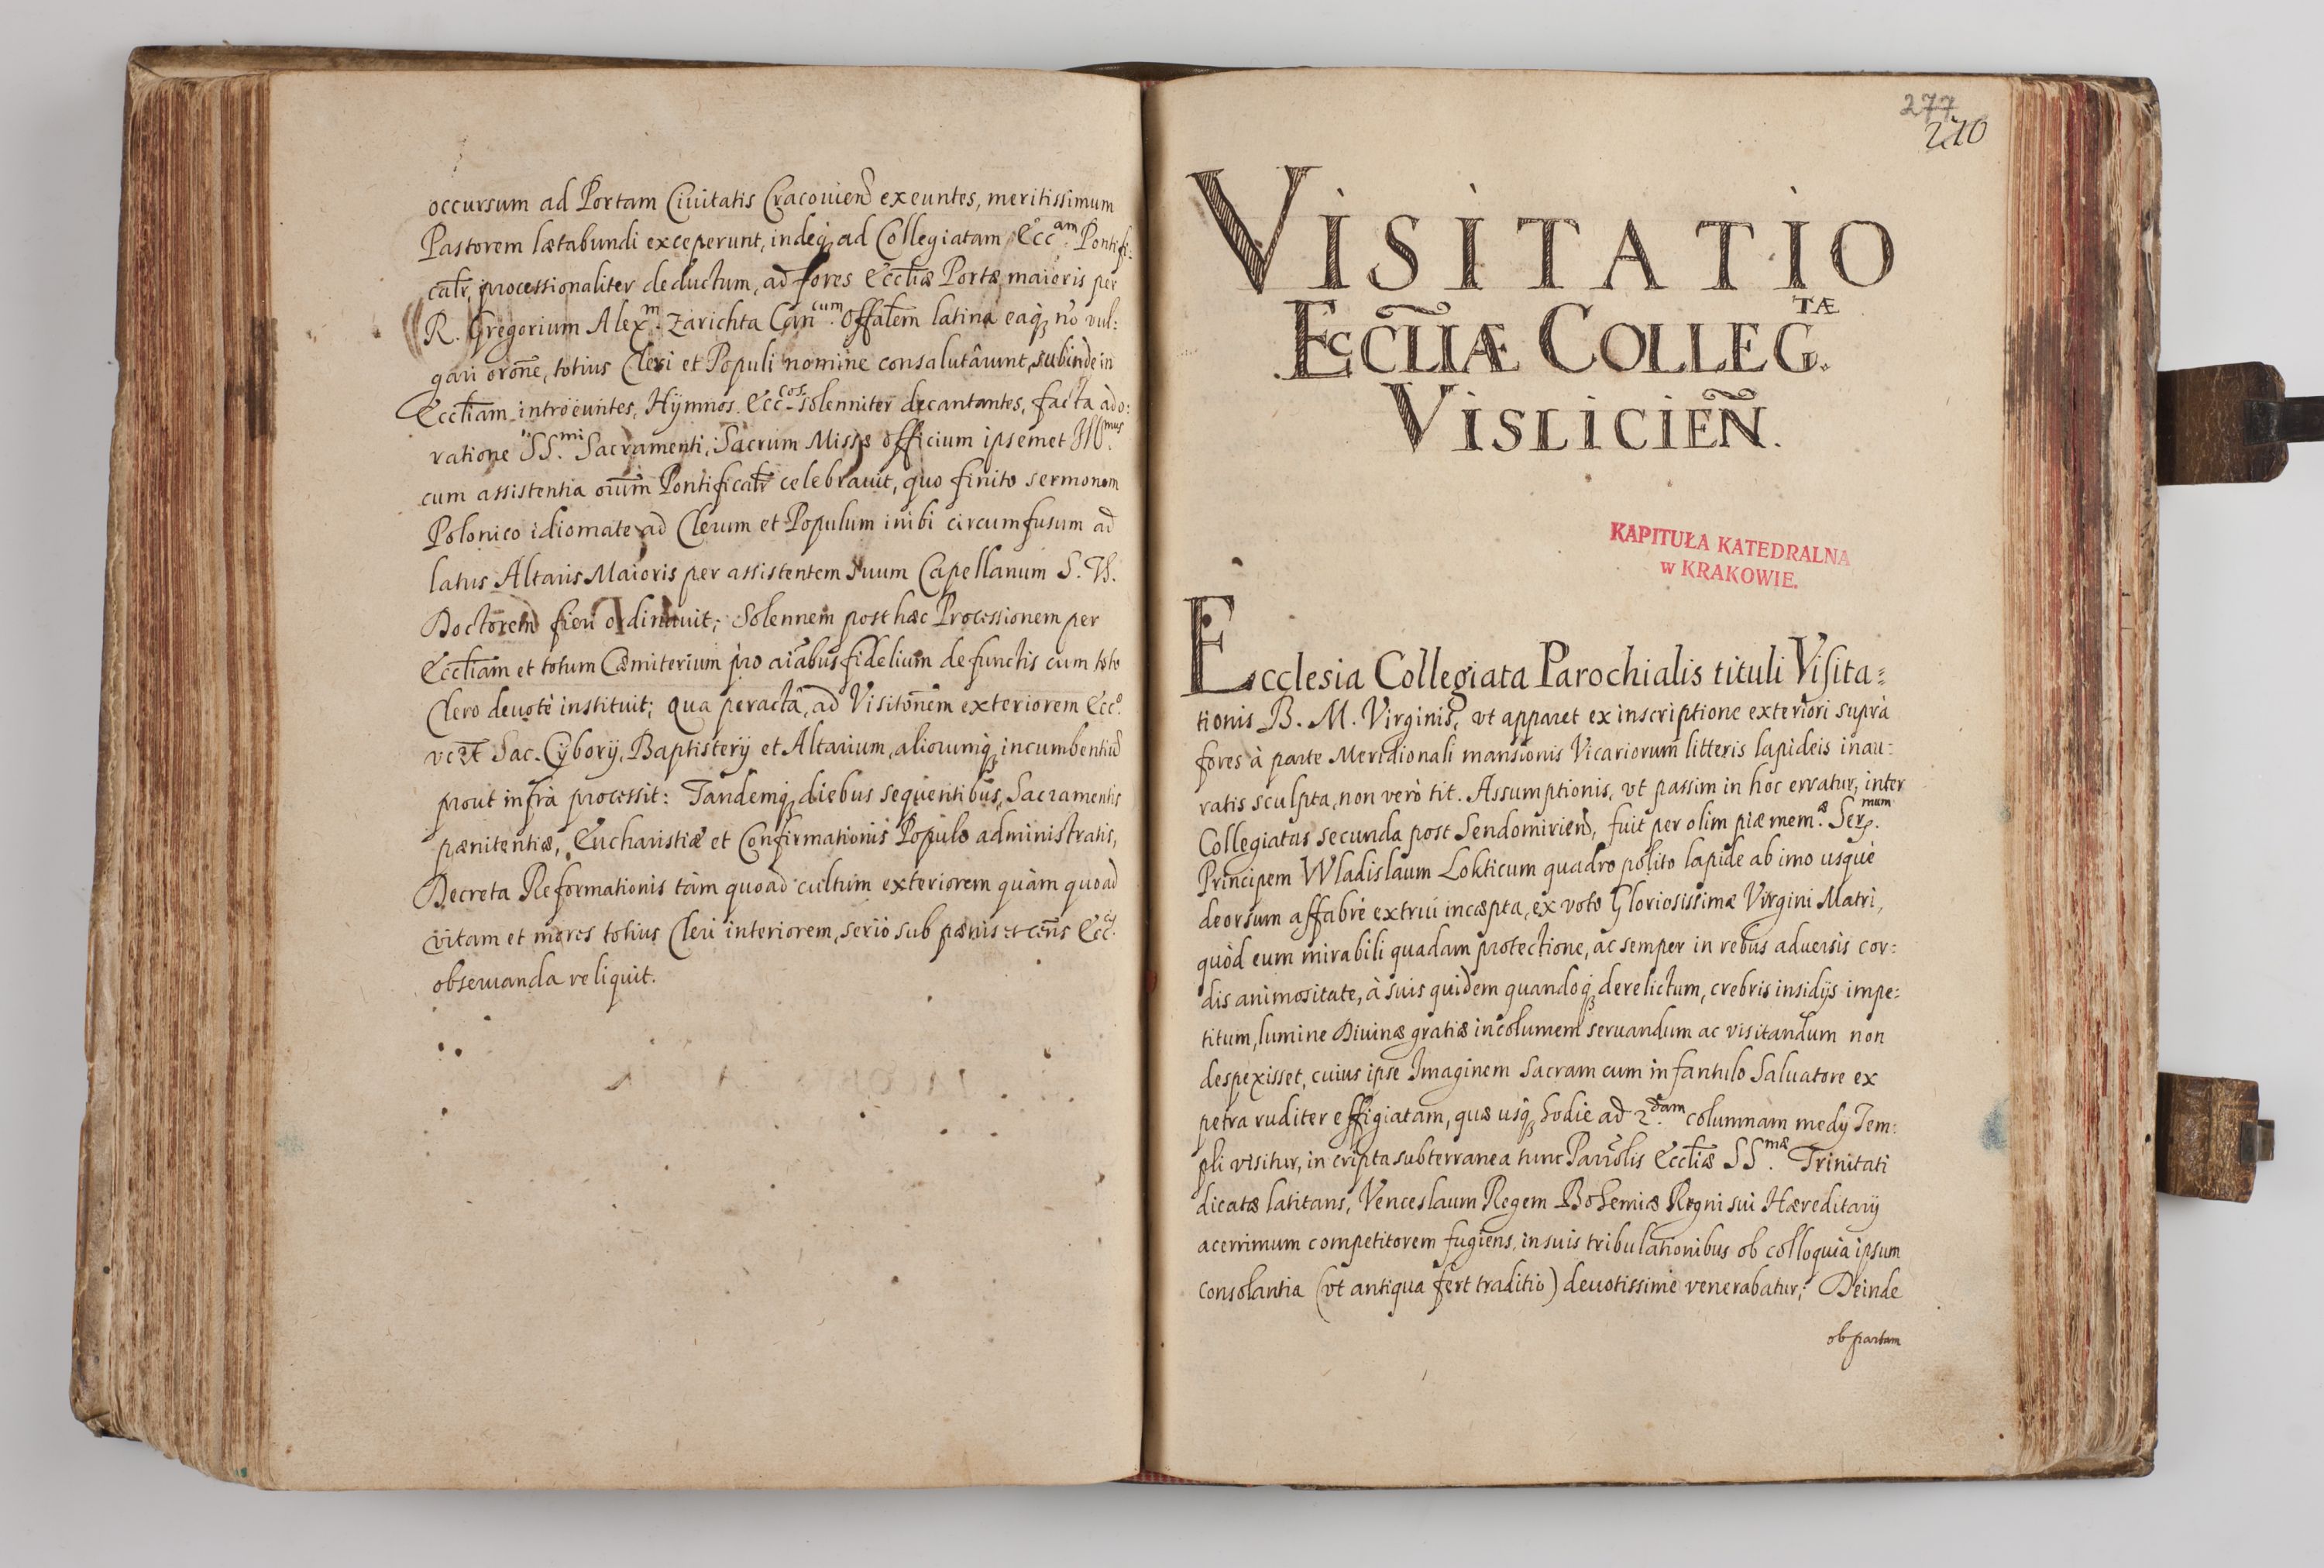 occursum ad Portam Ciuitatis Cracouien̄ exeuntes, meritissimum
Pastorem lætabundi exceperunt, indeq; ad Collegiatam Ecc.am Pontifi:
calr̄, processionaliter deductum, ad fores Eccl̄iæ Portæ maioris per
R. Gregorium Alex.m Zarichta Can.cum Offal̄em latina eaq; nō vul:
gari orōne, totius Cleri et Populi nomine consalutârunt, subinde in
Eccl̄iam introëuntes, Hÿmnos Ecc.cos solenniter decantantes, facta ado:
ratione SS.mi Sacramenti, Sacrum Missæ officium ipsemet Ill.mus
cum assistentia oīum Pontificalr̄ celebrauit, quo finito sermonem
Polonico idiomate ad Clerum et Populum inibi circumfusum ad
latus Altaris Maioris per assistentem suum Capellanum S. Th.
Doctorem fieri ordinauit; Solennem post hæc Processionem per
Eccl̄iam et totum Cœmiterium pro aīabus fidelium defunctis cum toto
Clero deuotè instituit; Qua peractâ, ad Visitōnem exteriorem Ecc.
Sac. Cyborÿ, Baptisterÿ et Altarium, aliorumq; incumbentiū
prout infrà processit: Tandemq; diebus sequentibus, Sacramentis
pænitentiæ, Eucharistiæ et Confirmationis Populo administratis,
Decreta Reformationis tàm quoad cultum exteriorem quàm quoad
vitam et mores totius Cleri interiorem, seriò sub pœnis et cen̄s Ecc.cis
obseruanda reliquit.
277
270
VISITATIO
ECCL̄IÆ COLLEG.TÆ
VISLICIEN̄.
KAPITUŁA KATEDRALNA
w KRAKOWIE.
Ecclesia Collegiata Parochialis tituli Visita=
tionis B. M. Virginis, vt apparet ex inscriptione exteriori suprà
fores à parte Meridionali mansionis Vicariorum litteris lapideis inau:
ratis sculpta, non verò tit. Assumptionis, vt passim in hoc erratur, inter
Collegiatas secunda post Sendomirien̄, fuit per olim piæ mem.æ Ser.mum
Principem Wladislaum Lokticum quadro polito lapide ab imo usquè
deorsum affabrè extrui incœpta, ex voto Gloriosissimæ Virgini Matri,
quòd eum mirabili quadam protectione, ac semper in rebus aduersis cor:
dis animositate, à suis quidem quandoq; derelictum, crebris insidijs impe:
titum, lumine Diuinæ gratiæ incolumem seruandum ac visitandum non
despexisset, cuius ipse Imaginem Sacram cum infantulo Saluatore ex
petra ruditer effigiatam, quæ usq; hodie ad 2.dam columnam medÿ Tem:
pli visitur, in cripta subterranea tunc Parrōlis Eccl̄iæ SS.mæ Trinitati
dicatæ latitans, Venceslaum Regem Bohemiæ Regni sui Hæreditarÿ
acerrimum competitorem fugiens, in suis tribulationibus ob colloquia ipsum
consolantia (vt antiqua fert traditio) deuotissimè venerabatur; Deinde
ob partam